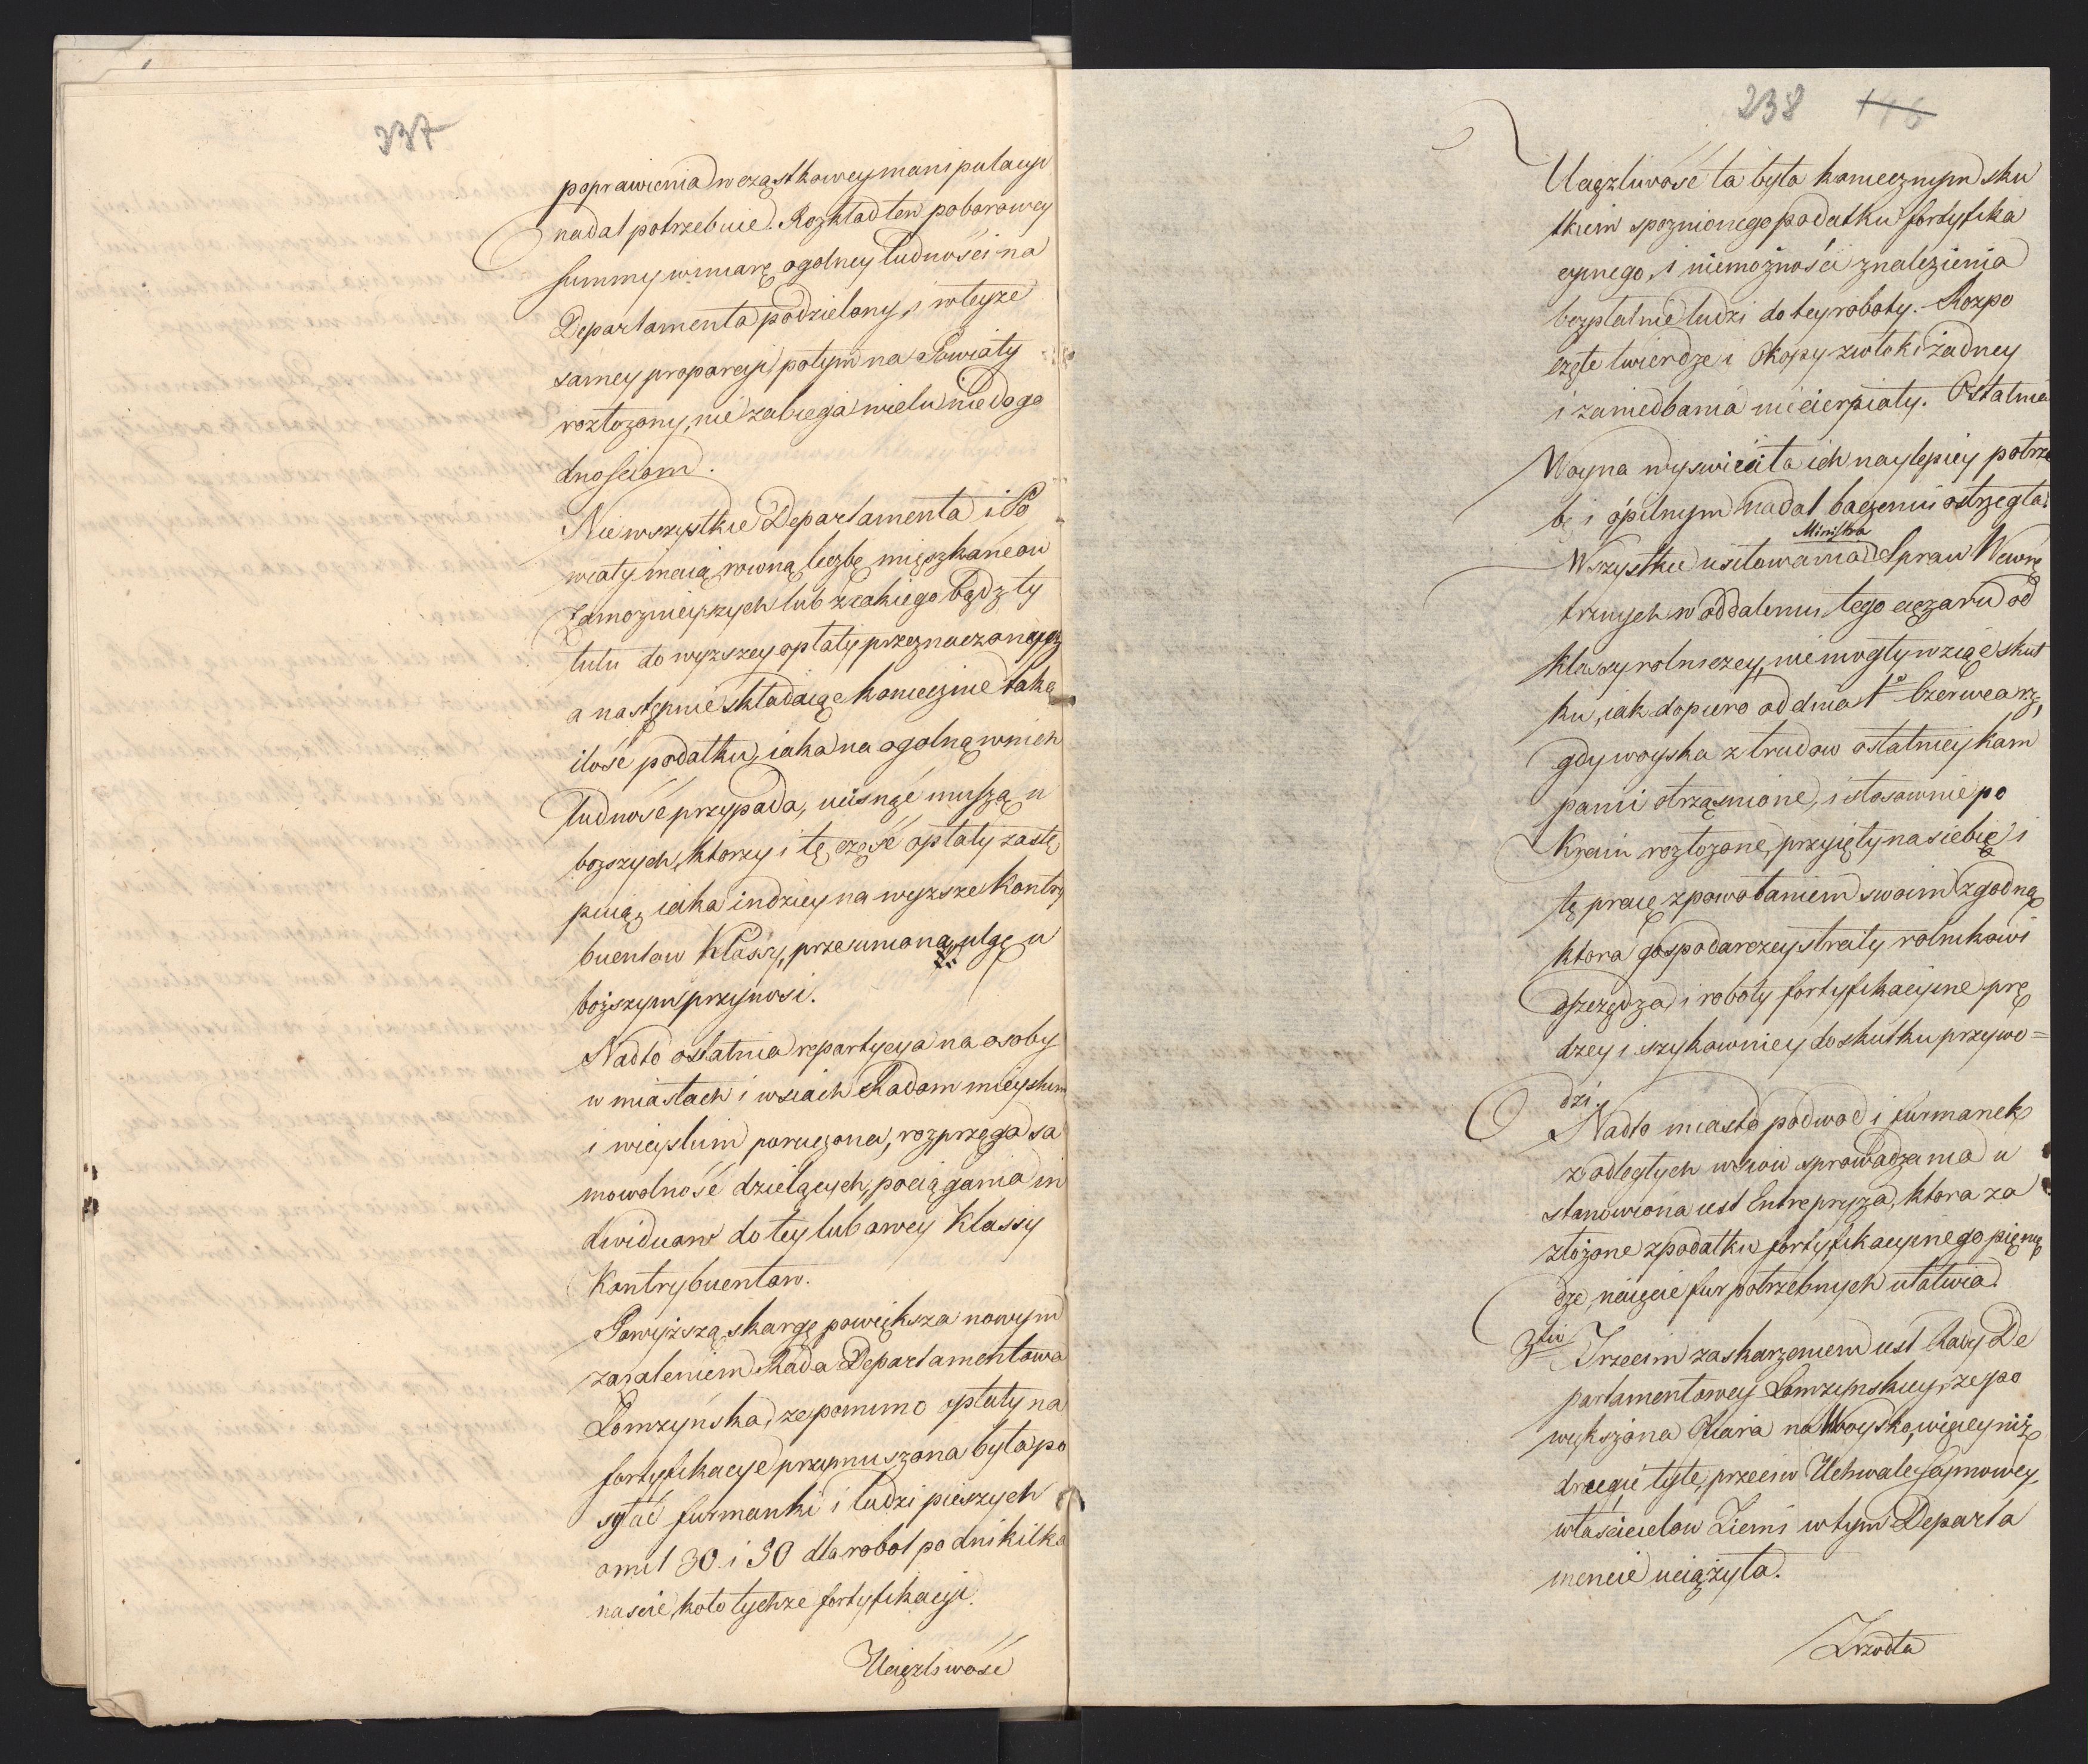 237
poprawienia w cząstkowey manipulacyi
nadal potrzebuie. Rozkład ten poborowey
summy w miarę ogolney ludności na
Departamenta podzielony, i w teyże
samey proporcyi potym na Powiaty
rozłożony, nie zabiega wielu niedogo
dnościom.
Nie wszystkie Departamenta i Po
wiaty maią rowną liczbę mięszkańcow
Zamoznieyszych lub z iakiego bądz ty
tułu do wyzszey opłaty przeznaczonych
a następnie składaiąc koniecznie taką
ilość podatku, iaka na ogolną w nich
ludność przypada, ucisnąć muszą u
boższych, ktorzy i tę część opłaty zastę
puią, iaka indziey na wyższe Kontry
buentow Klassy, przesuniona, ulgę u
boższym przynosi.
Nadto ostatnia repartycya na osoby
w miastach i wsiach Radom mieyskim
i wieyskim poruczona, rozprzęga sa
mowolność dzielących, pociągania in
dwiduow do tey lub owey Klassy
Kontrybuentow.
Powyższą skargę powiększa nowym
zażaleniem Rada Departamentowa
Łomzyńska, ze pomimo opłaty na
fortyfikacye przymuszona była po
syłać furmanki i ludzi pieszych
o mil 30 i 50 dla robot po dni kilka
naście koło tychże fortyfikacyi.
Uciążliwość
238 116
Uciążliwość ta była koniecznym sku
tkiem spoznionego podatku fortyfika
cyinego, i niemożności znalezienia
bezpłatnie ludzi do tey roboty. Rozpo
częte twierdze i Okopy zwłoki żadney
i zaniedbania nie cierpiały. Ostatnia
Woyna wyswieciła ich naylepiey potrze
bę i o pilnym nadal baczeniu ostrzegła.
Ministra
Wszystkie usiłowania Spraw Wewnę
trznych w oddaleniu tego ciężaru od
klassy rolniczey, nie mogły wziąć skut
ku, iak dopiero od dnia 1o Czerwca rz,
gdy woyska z trudow ostatniey kam
panii otrząsnione, i stosownie po
Kraiu rozłożone, przyięły na siebie i
tę pracę z powołaniem swoim zgodną,
ktora gospodarczey straty rolnikowi
oszczędza, i roboty fortyfikacyine prę
dzey i szykowniey do skutku przywo=
dzi.
Nadto miasto podwod i furmanek
z odległych wsiow sprowadzania u
stanowiona iest Entrepryza, ktora za
złożone z podatku fortyfikacyinego pienią
dze, naięcie fur potrzebnych ułatwia.
3tio Trzecim zaskarżeniem iest Rady De
partamentowey Łomzynskiey, ze po
większona Ofiara na Woysko, więcey niż
drugie tyle, przeciw Uchwale Seymowey,
właścicielow Ziemi w tym Departa
mencie uciążyła.
Zrzodła